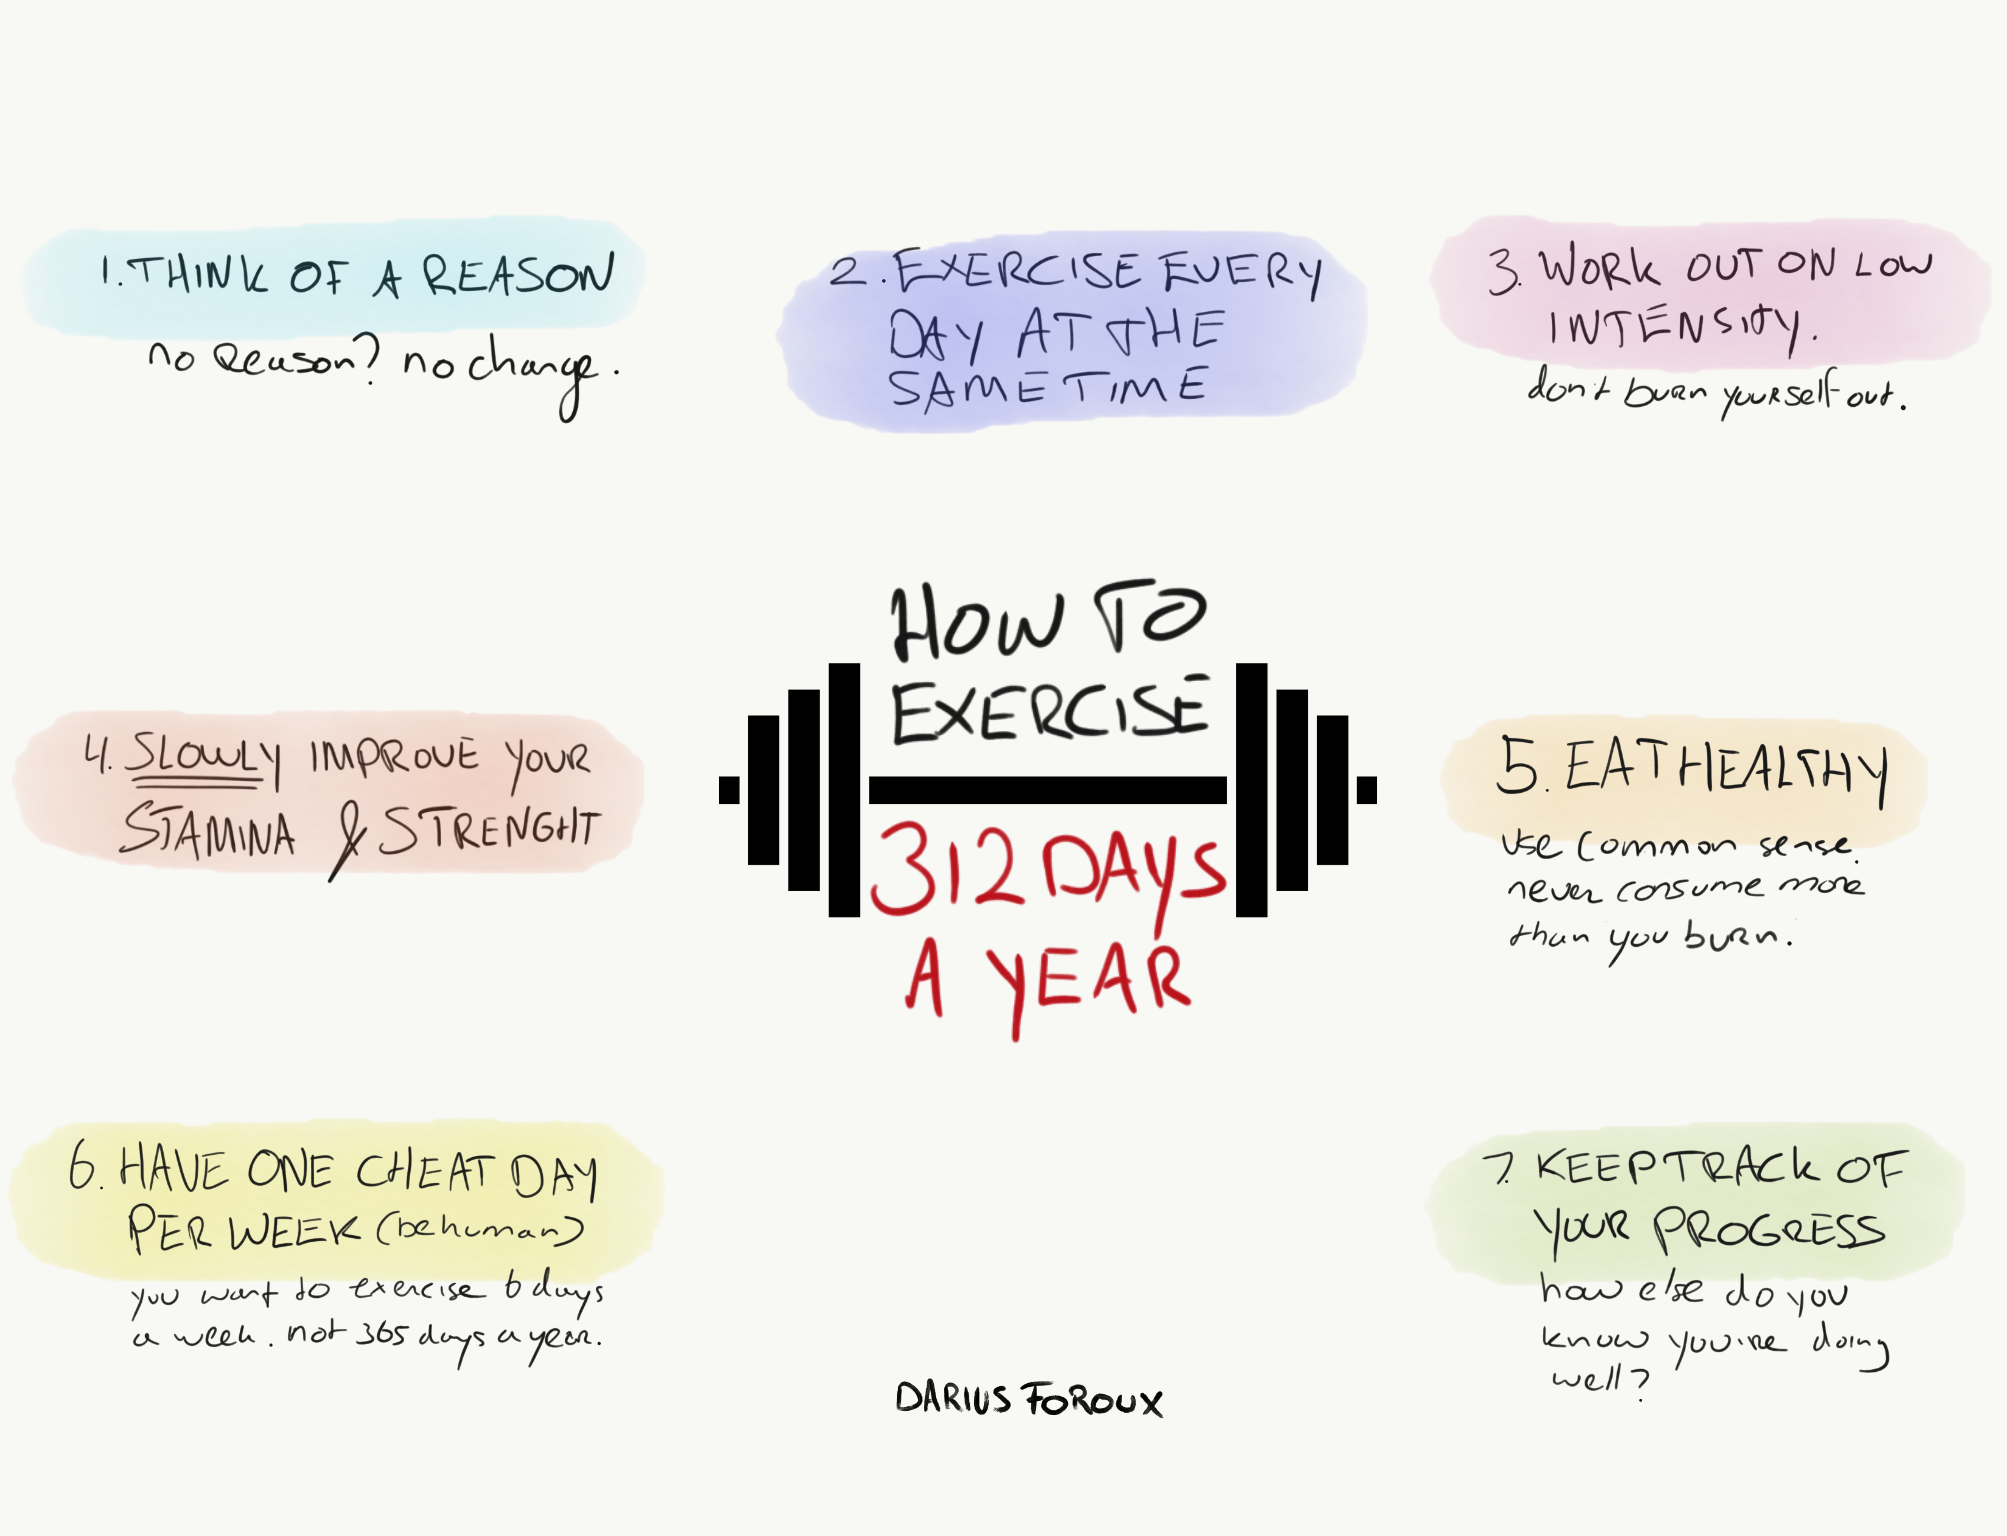 1. THINK OF A REASON
no Reason? no change.
2. EXERCISE EVERY
DAY AT THE
SAME TIME
3. WORK OUT ON LOW
INTENSITY.
don't burn yourself out.
HOW TO
EXERCISE
312 DAYS
A YEAR
4. SLOWLY IMPROVE YOUR
STAMINA & STRENGHT
5. EAT HEALTHY
use common sense.
never consume more
than you burn.
6. HAVE ONE CHEAT DAY
PER WEEK (be human)
you want to exercise 6 days
a week. not 365 days a year.
7. KEEP TRACK OF
YOUR PROGRESS
how else do you
know you're doing
well?
DARIUS FOROUX